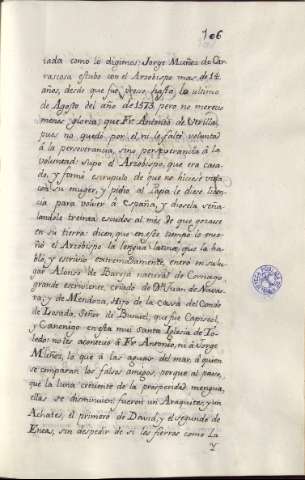 106
iada como lo digimos: Jorge Muñez de Car-
rascosa estubo con el Arzobispo mas de 14
años, desde que fue preso hasta lo ultimo
de Agosto del año de 1573 pero no merecio
menos gloria que Fr. Antonio de Utrilla,
pues no quedó por el, ni le faltó voluntad
á la perseverancia, sino perseverancia á la
voluntad: supo el Arzobispo, que era casa-
do, y formó escrupulo de que no hiciese vida
con su muger, y pidio al Papa le diese licen-
cia para volver á España, y diosela seña-
landole treinta escudos al mes de que gozase
en su tierra: dicen que en este tiempo lo ense-
ñó el Arzobispo la lengua latina, que la ha-
bló, y escrivio extremadamente, entró en su lu-
gar Alonso de Barja natural de Cornago
grande escriviente, criado de Dn. Juan de Navar-
ra, y de Mendoza, Hijo de la cassa del Conde
de Losada, Señor de Buniel, que fue Capiscol,
y Canonigo en esta mui Santa Iglesia de To-
ledo: no les acontecio á Fr. Antonio, ni á Jorge
Muñes, lo que á las aguas del mar, á quien
se comparan los falsos amigos, porque al paso,
que la luna creciente de la prosperidad mengua,
ellas se disminuien: fueron un Araquites, y un
Achates, el primero de David, y el segundo de
Eneas, sin despedir de si los fierros como la
Y